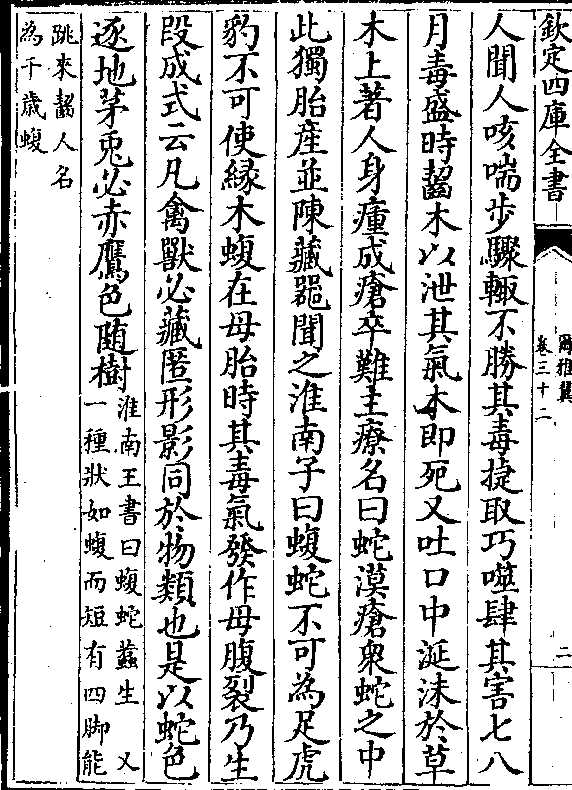 欽定四庫全書
爾雅翼
卷三十二
二
人聞人咳喘步驟輙不勝其毒捷取巧噬肆其害七八
月毒盛時齧木以泄其氣木即死又吐口中涎沫於草
木上著人身瘇成瘡卒難主療名曰蛇漠瘡衆蛇之中
此獨胎産並陳藏器聞之淮南子曰蝮蛇不可為足虎
豹不可使緣木蝮在母胎時其毒氣發作母腹裂乃生
段成式云凡禽獸必藏匿形影同於物類也是以蛇色
逐地茅兎必赤鷹色隨樹
淮南王書曰蝮蛇蠚生 又
一種狀如蝮而短有四脚能
跳來齧人名
為千歲蝮